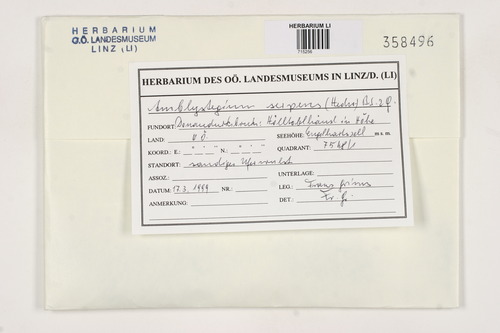 HERBARIUM
OÖ. LANDESMUSEUM
LINZ (LI)
HERBARIUM LI
358496
HERBARIUM DES OÖ. LANDESMUSEUMS IN LINZ/D. (LI)
Amblystegium serpens (Hedw.) B.S.G.
FUNDORT: in Höhe
LAND: OÖ SEEHÖHE: Engelhartszell m s. m.
KOORD.: E.: ° ' " N.: ° ' " QUADRANT: 7548/1
STANDORT: sandiger
ASSOZ.: UNTERLAGE:
DATUM: 17.3.1999 NR.: LEG.: Franz Grims
ANMERKUNG: DET.: Fr. G.